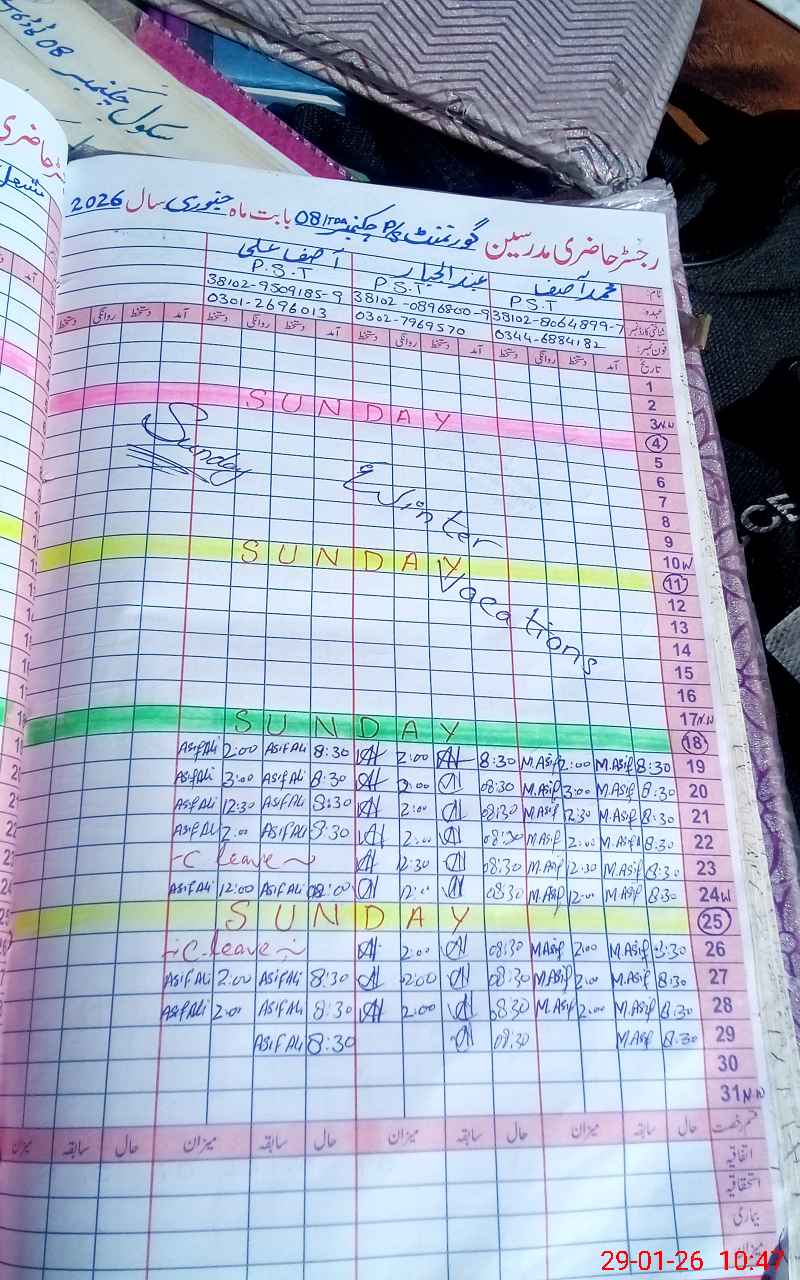 سکول چکنمبر 08
رجسٹر حاضری مدرسین گورنمنٹ P/S چکنمبر 08/TDA بابت ماہ جنوری سال 2026
نام: محمد آصف عبدالجبار آصف علی
عہدہ P.S.T P.S.T P.S.T
شناختی کارڈ نمبر 38102-8064899-7 38102-0896800-9 38102-9509185-9
فون نمبر: 0344-6884182 0302-7969570 0301-2696013
تاریخ آمد دستخط روانگی دستخط آمد دستخط روانگی دستخط آمد دستخط روانگی دستخط
1
2
3 N.W
4 SUNDAY
5
6
7
8
9
10 W
11 SUNDAY
12
13
14
15
16
17 N.W
18 SUNDAY
Sunday
Winter
Vacations
19 8:30 M.Asif 2:00 M.Asif 8:30 2:00 8:30 Asif Ali 2:00 Asif Ali
20 8:30 M.Asif 3:00 M.Asif 08:30 8:30 Asif Ali 3:00 Asif Ali
21 8:30 M.Asif 12:30 M.Asif 08:30 2:00 8:30 Asif Ali 12:30 Asif Ali
22 8:30 M.Asif 2:00 M.Asif 08:30 2:00 8:30 Asif Ali 2:00 Asif Ali
23 8:30 M.Asif 12:30 M.Asif 08:30 12:30 C leave
24 W 8:30 M.Asif 12:00 M.Asif 08:30 12:00 08:00 Asif Ali 12:00 Asif Ali
25 SUNDAY
26 8:30 M.Asif 2:00 M.Asif 08:30 2:00 C.leave
27 8:30 M.Asif 2:00 M.Asif 08:30 2:00 8:30 Asif Ali 2:00 Asif Ali
28 8:30 M.Asif 2:00 M.Asif 08:30 2:00 8:30 Asif Ali 2:00 Asif Ali
29 8:30 M.Asif 08:30 8:30 Asif Ali
30
31 N.W
قسم رخصت حال سابقہ میزان حال سابقہ میزان حال سابقہ میزان حال سابقہ میزان
اتفاقیہ
استحقاقیہ
بیماری
میزان
29-01-26 10:47